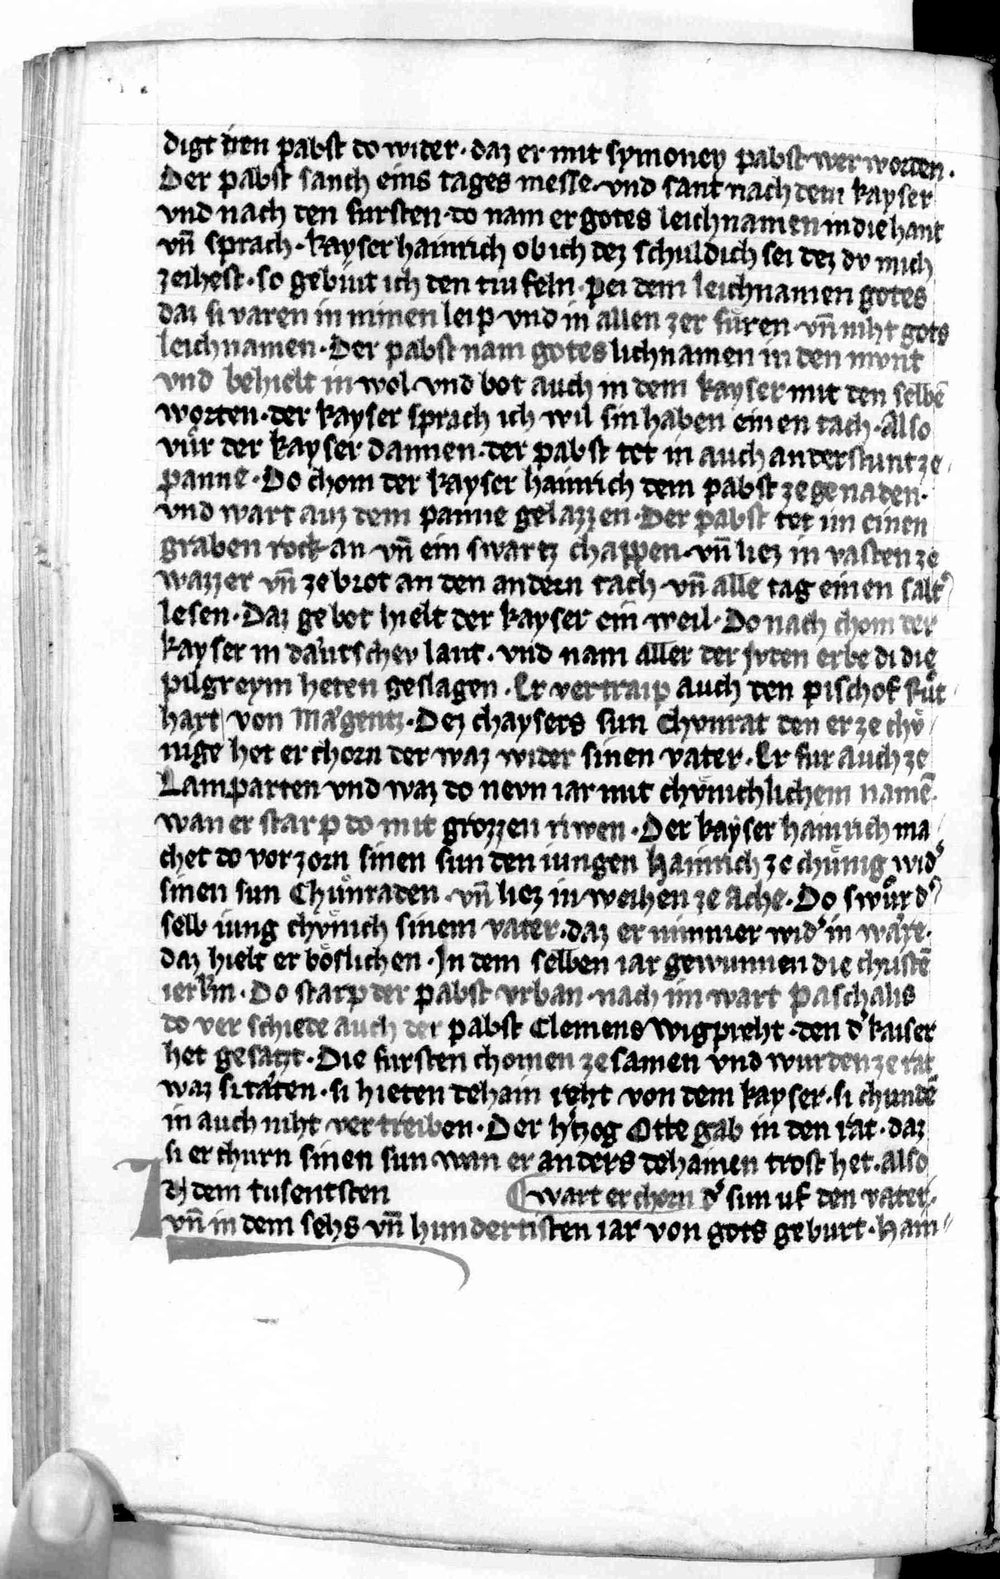 digt den pabst do wider · daz er mit symoney pabst wer worden ·
Der pabst sanch eins tages messe · vnd sant nach dem kayser
vnd nach den fursten · do nam er gotes leichnamen in die hant
vn̄ sprach · kayser hainrich ob ich dez schuldich sei dez dv mich
zeihest · so gebiut ich den tiufeln · pei dem leichnamen gotes
daz si varen in minen leip vnd in allen zer fuͤren · vn̄ niht gots
leichnamen · Der pabst nam gotes lichnamen in den mvnt
vnd behielt in wol vnd bot auch in dem kayser mit den selbē
worten · der kayser sprach ich wil sin haben einen tach · Also
vuͦr der kayser dannen · der pabst tet in auch anderstunt ze
panne · Do chom der kayser hainrich dem pabst ze genaden ·
vnd wart auz dem panne gelazzen · Der pabst tet im einen
graben rock an vn̄ ein swartz chappen · vn̄ liez in vasten ze
wazzer vn̄ ze brot an den andern tach · vn̄ alle tag einen salt᾿
lesen · Daz gebot hielt der kayser ein weil · Do nach chom der
kayser in daͤutschev lant · vnd nam aller der jvden erbe di die
pilgreym heten geslagen · Er vertraip auch den pischof Ruͦt
hart von Maͤgentz · Dez chaysers sun Chvnrat den er ze chv̊
nige het erchorn der waz wider sinen vater · Er fur auch ze
Lamparten vnd waz do nevn iar mit chvͤnichlichem namē ·
wan er starp do mit grozzen riwen · Der kayser hainrich ma
chet do vor zorn sinen sun den iungen hainrich ze chuͤnig wid᾿
sinen sun Chuͦnraden · vn̄ liez in weihen ze Ache · Do swuͦr d᾿
selb iung chvͤnich sinem vater · daz er nimmer wid᾿ in waͤre ·
daz hielt er boͤslichen · In dem selben iar gewunnen die christē
ierlm̄ · Do starp der pabst vrban · nach im wart paschalis
do ver schiede auch der pabst Clemens wigpreht · den d᾿ kaiser
het gesatzt · Die fursten chomen ze samen vnd wurden ze rat
waz si taͤten · si hieten dehain reht von dem kayser · si chundē
in auch niht vertreiben · Der h᾿tzog Otte gab in den rat · daz
si erchurn sinen sun wan er anders dehainen trost het · also
IN dem tusentsten wart erchorn d᾿ sun uf den vater ·
vn̄ in dem sehs vn̄ hundertisten iar von gots geburt · Hain